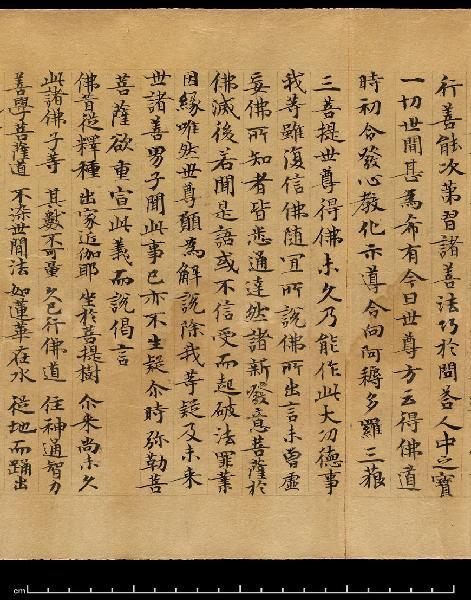 行善能次第習諸善法巧於問荅人中之寶
一切世間甚為希有今日世尊方云得佛道
時初令發心教化示導令向阿耨多羅三藐
三菩提世尊得佛未久乃能作此大功德事
我等雖復信佛隨宜所說佛所出言未曾虛
妄佛所知者皆悉通達然諸新發意菩薩於
佛滅後若聞是語或不信受而起破法罪業
因緣唯然世尊願為解說除我等疑及未來
世諸善男子聞此事已亦不生疑尒時弥勒菩
菩薩欲重宣此義而說偈言
佛昔從釋種 出家近伽耶 坐於菩提樹 尒來尚未久
此諸佛子等 其數不可量 久已行佛道 住神通智力
善學菩薩道 不染世間法 如蓮華在水 從地而踊出
cm